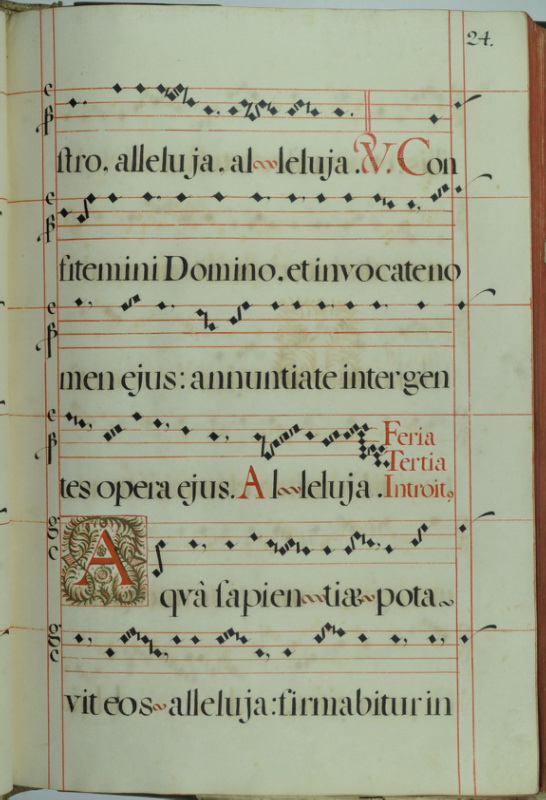 24.
ſtro, alleluja, alleluja. V. Con
fitemini Domino, et invocate no
men ejus: annuntiate inter gen
tes opera ejus. Alleluja. Feria
Tertia
Introit9
Aqvà ſapientiæ pota
vit eos alleluja: firmabitur in